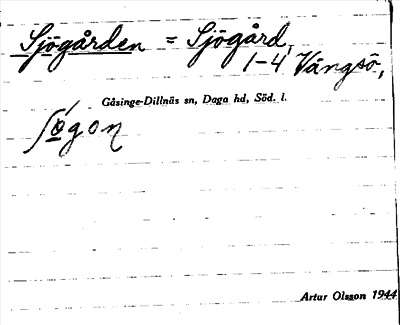 Sjögården = Sjögård,
1-4 Vängsö,
Gåsinge-Dillnäs sn, Daga hd, Söd. l.
Artur Olsson 1944